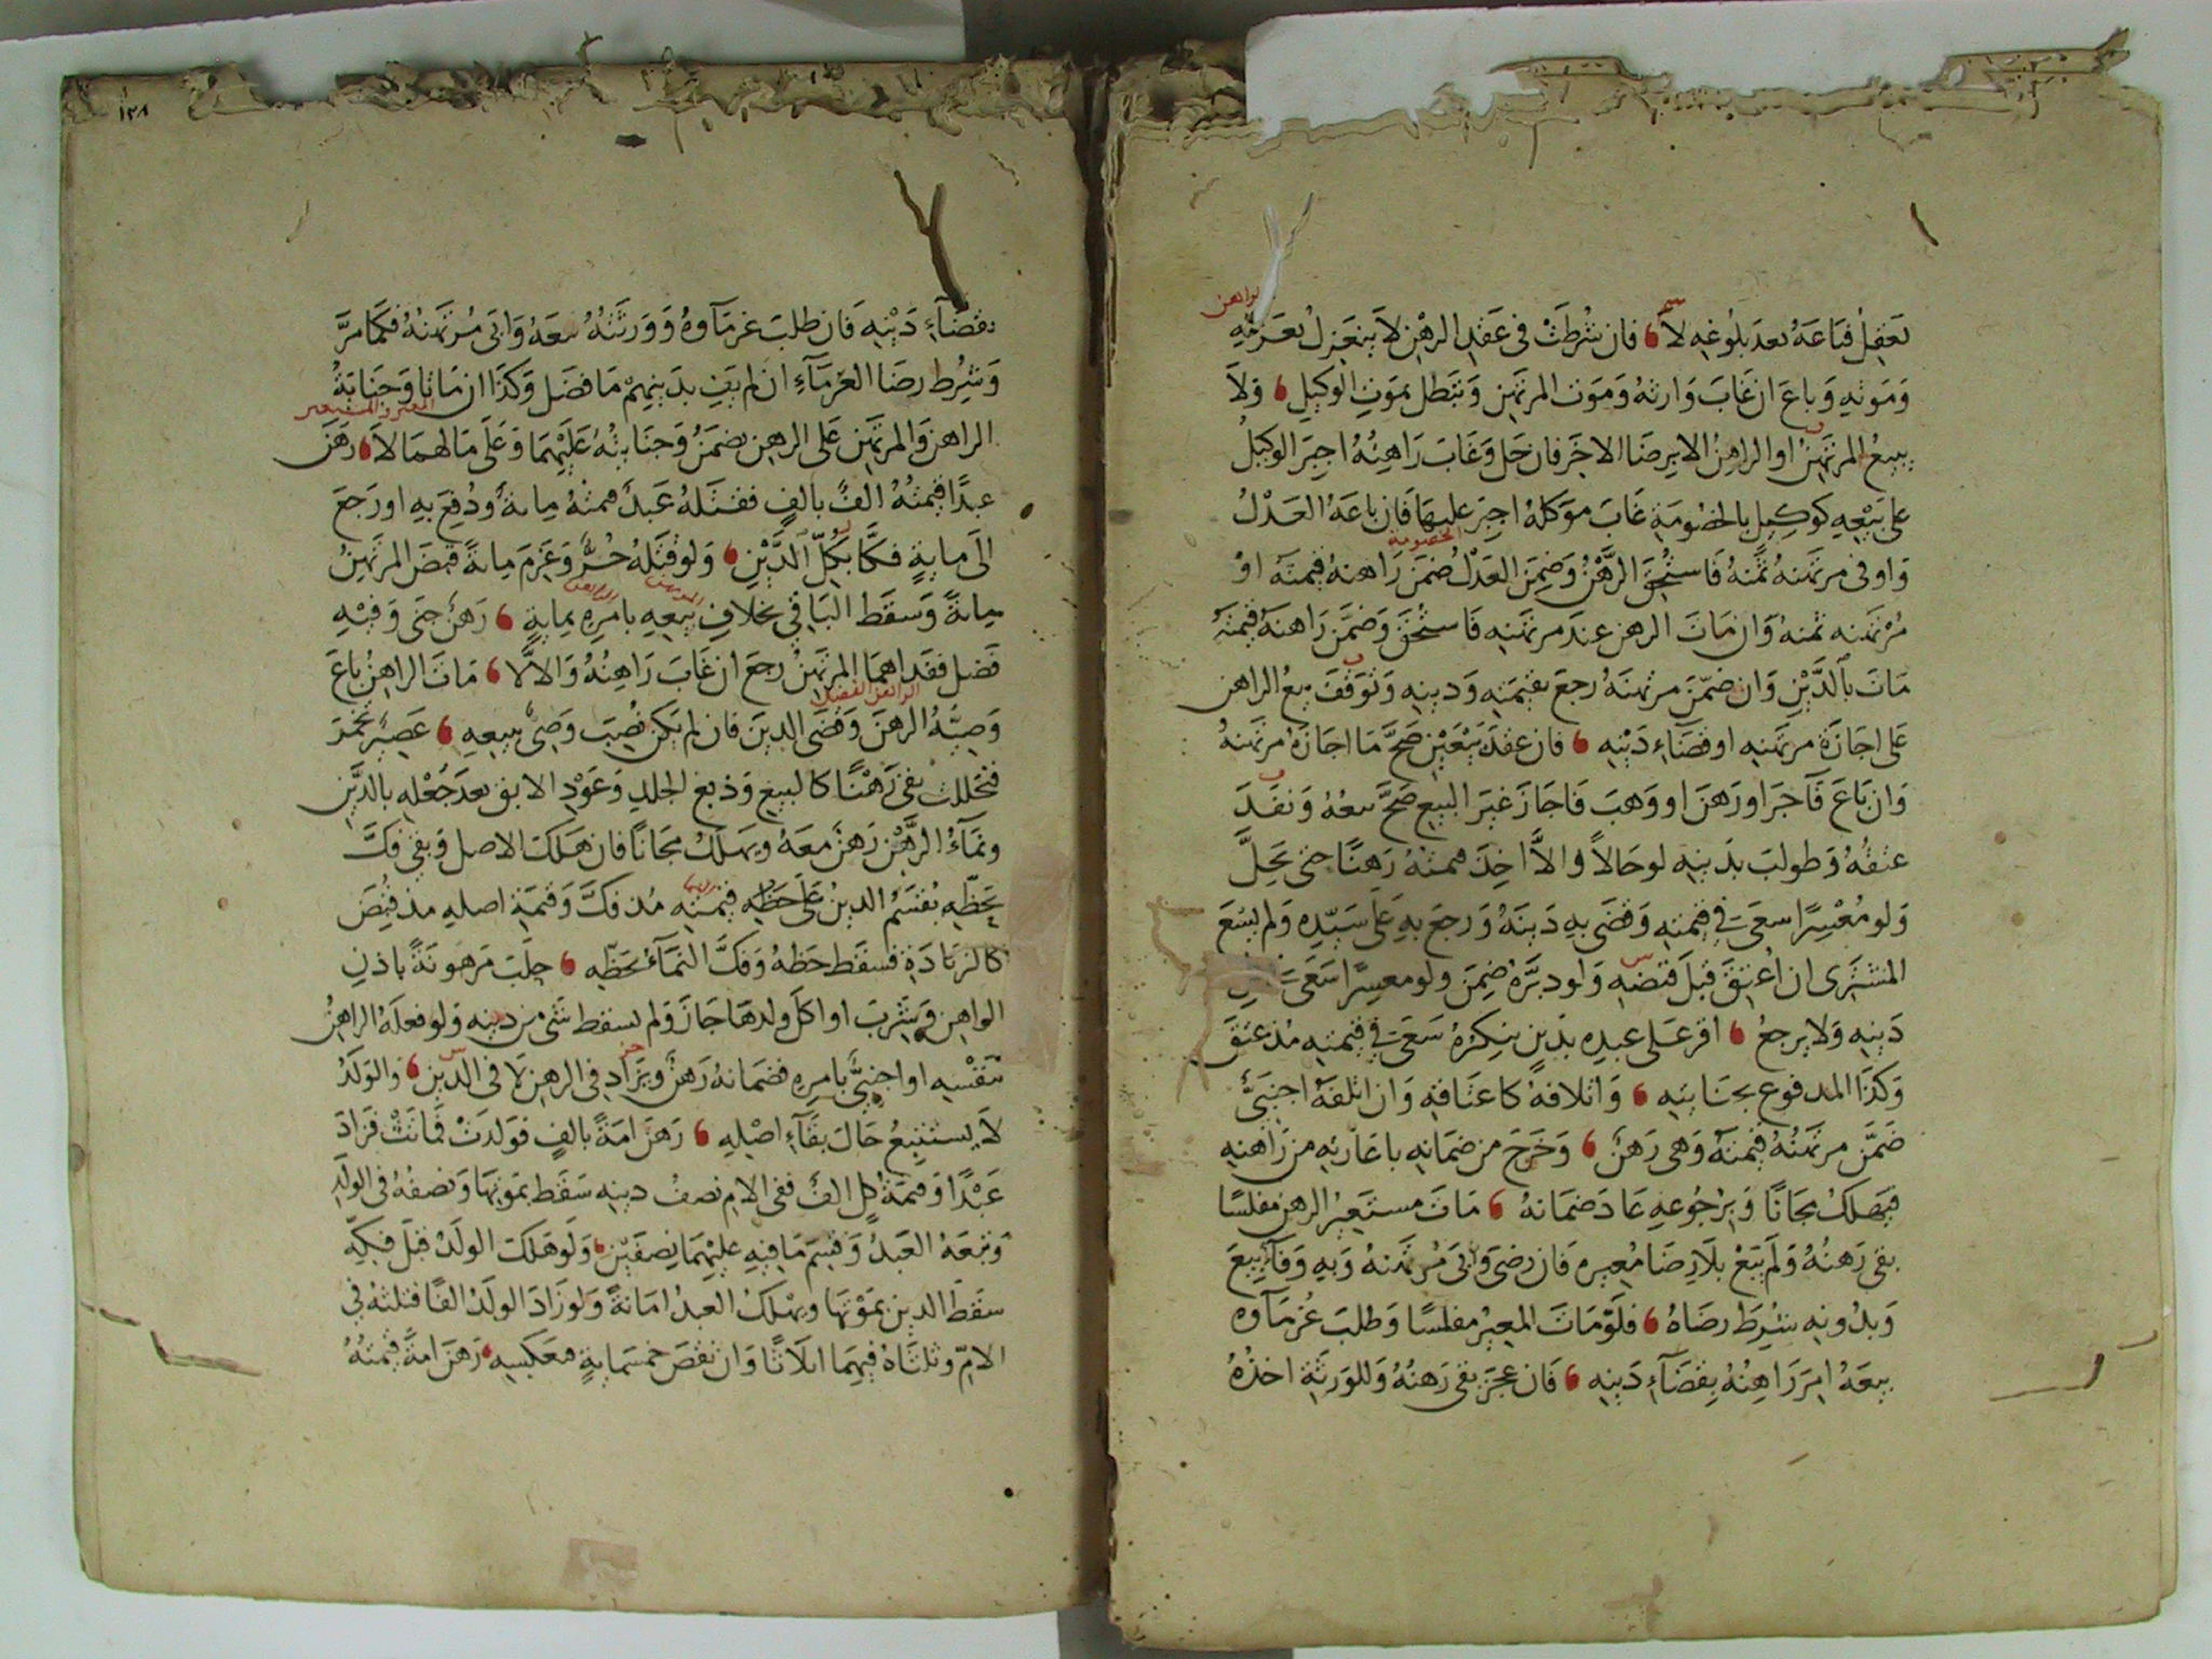 يعقل فباعه بعد بلوغه لا فان شرطت في عقد الرهن لا ينعزل بعزله
الراهن
وموته وباع ان غاب وارثه وموت المرتهن وتبطل بموت الوكيل ولا
يبيع المرتهن او الراهن الا برضا الاخر فان حل وغاب راهنه اجبر الوكيل
على بيعه كوكيل بالخصومة غاب موكله اجبر عليها فان باعه العدل
الخصومة
واوفى مرتهنه ثمنه فاستحق الرهن وضمن العدل ضمن راهنه قيمته او
مرتهنه ثمنه وان مات الرهن عند مرتهنه فاستحق وضمن راهنه قيمته
مات بالدين وان ضمن مرتهنه رجع بقيمته ودينه وتوقف بيع الراهن
على اجازة مرتهنه او قضاء دينه فان عقد بيعين صح ما اجازه مرتهنه
وان باع فآجر او رهن او وهب فاجاز غير البيع صح بيعه ونفذ
عتقه وطولب بدينه لو حالا والا اخذ قيمته رهنا حتى يحل
ولو معسرا سعى في قيمته وقضى به دينه ورجع به على سيده ولم يسع
المشترى ان اعتق قبل قبضه ولو دبره ضمن ولو معسرا سعى في
دينه ولا يرجع اقر على عبده بدين ينكره سعى في قيمته مذ عتق
وكذا المدفوع بجنايته واتلافه كاعتاقه وان اتلفه اجنبي
ضمن مرتهنه قيمته وهى رهن وخرج من ضمانه باعارته من راهنه
فيهلك مجانا وبرجوعه عاد ضمانه مات مستعير الرهن مفلسا
بقى رهنه ولم يبع بلا رضا معيره فان رضى وابى مرتهنه وبه وفاء بيع
وبدونه شرط رضاه فلو مات المعير مفلسا وطلب غرماوه
بيعه امر راهنه بقضاء دينه فان عجز بقى رهنه وللورثة اخذه
١٣٨
بقضاء دينه فان طلب غرماوه وورثته بيعه وابى مرتهنه فكما مر
وشرط رضا الغرماء ان لم يف بدينهم ما فضل وكذا ان ماتا وجناية
المعير والمستعير
الراهن والمرتهن على الرهن تضمن وجنايته عليهما وعلى مالهما لا رهن
عبدا قيمته الف بالف فقتله عبد قيمته مائة ودفع به او رجع
الى ماية فكا بكل الدين ولو قتله حر وغرم مائة قبض المرتهن
مائة وسقط الباقي بخلاف بيعه بامره بماية رهن جنى وفيه
المرتهن الراهن
فضل ففداهما المرتهن رجع ان غاب راهنه والا لا مات الراهن باع
وصيه الرهن وقضى الدين فان لم يكن نصب وصى ببيعه عصير تخمر
الراهن الفضل
فتخللت بقى رهنا كالبيع وذبغ الجلد وعود الابق بعد جعله بالدين
ونماء الرهن رهن معه ويهلك مجانا فان هلك الاصل وبقى فك
بحظه يقسم الدين على حظه قيمته مذ فك وقيمة اصله مذ قبض
كالزيادة فسقط حظه وفك النماء بحظه حلب مرهونة باذن
الراهن وشرب او اكل ولدها جاز ولم يسقط شى من دينه ولو فعله الراهن
بنفسه او اجنبي بامره فضمانه رهن ويزاد في الرهن لا في الدين والولد
لا يستتبع حال بقاء اصله رهن امة بالف فولدت فماتت فزاد
عبدا وقيمة كل الف ففى الام نصف دينه سقط بموتها ونصفه في الولد
وتبعه العبد وقسم ما فيه عليهما نصفين ولو هلك الولد قبل فكه
سقط الدين بموتها ويهلك العبد امانة ولو زاد الولد الفا فثلثه في
الام وثلثاه فيهما اثلاثا وان نقص خمسماية فعكسه رهن امة قيمته